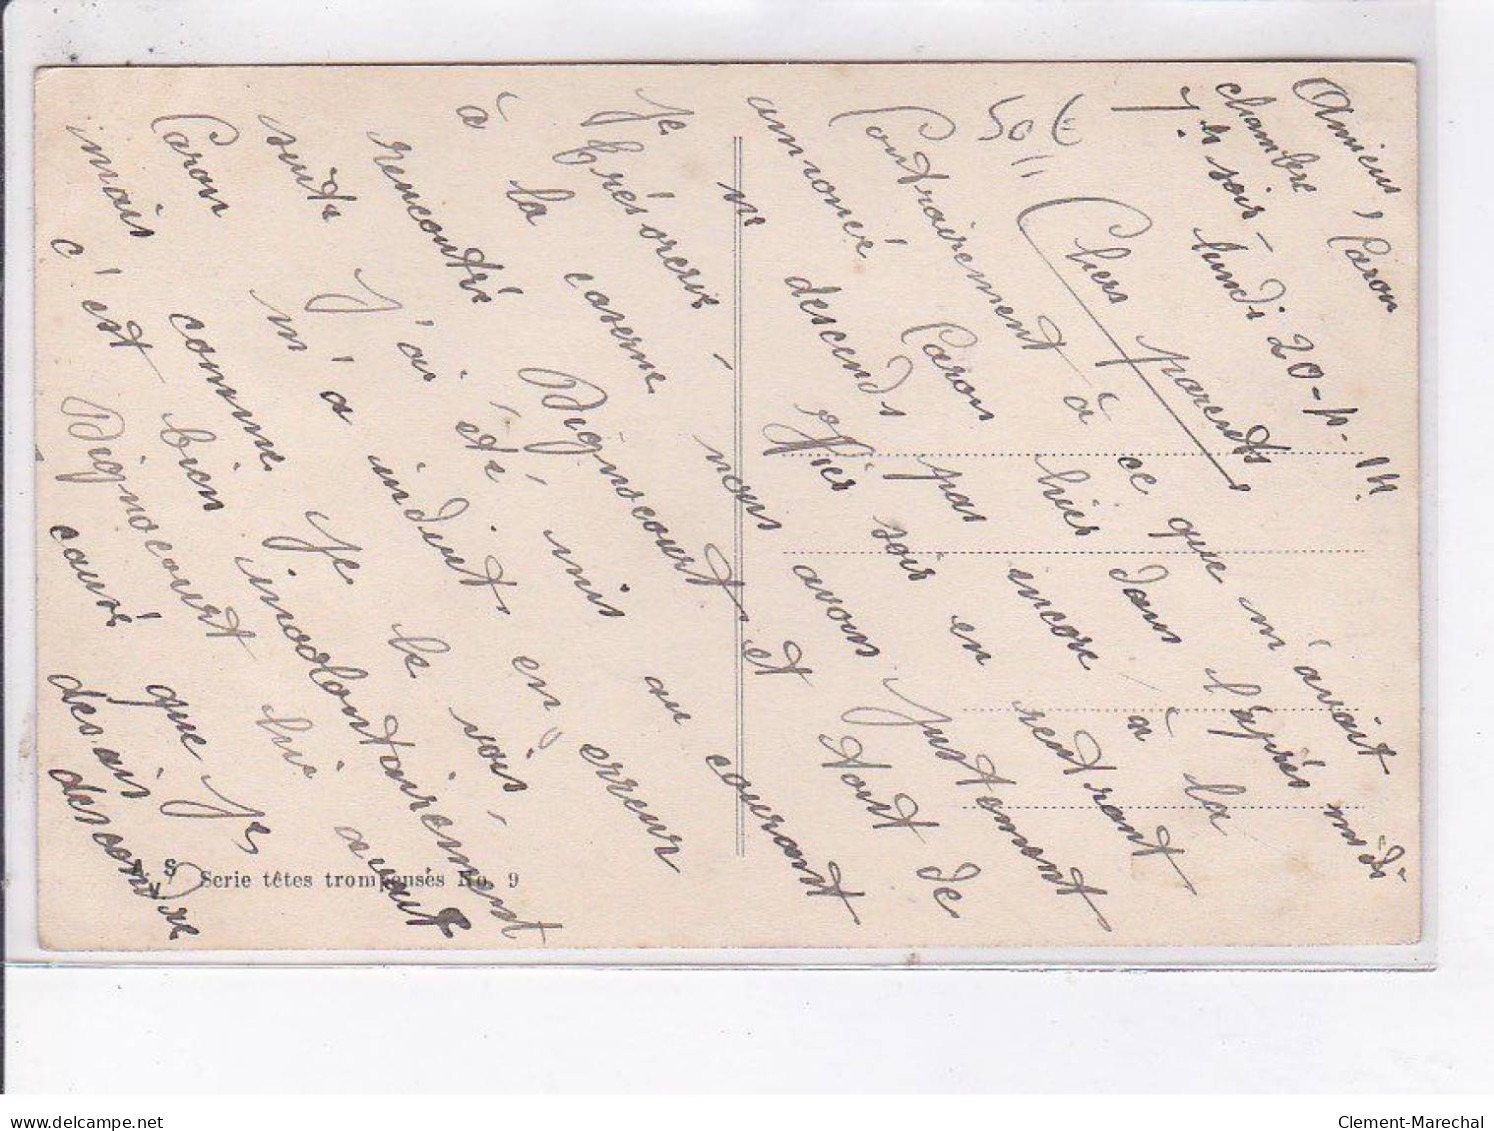 Amiens, Caron
chambre
7. h soir - lundi 20-4-14
Chers parents,
Contrairement à ce que m'avait
annoncé Caron hier dans l'après midi
ne descends pas encore à la
hier soir en rentrant
nous avons justement
et tout de
Trésorerie,
Je
à la caserne
rencontré Dignocourt. courant
suite J'ai été mis au
Caron m'a induit en erreur
mais comme Je le vois,
c'est bien involontairement
Dignocourt lui avait
causé que Je
desais
descendre
50 €
Serie têtes trompeuses No. 9
Clement-Marechal
delcampe.net